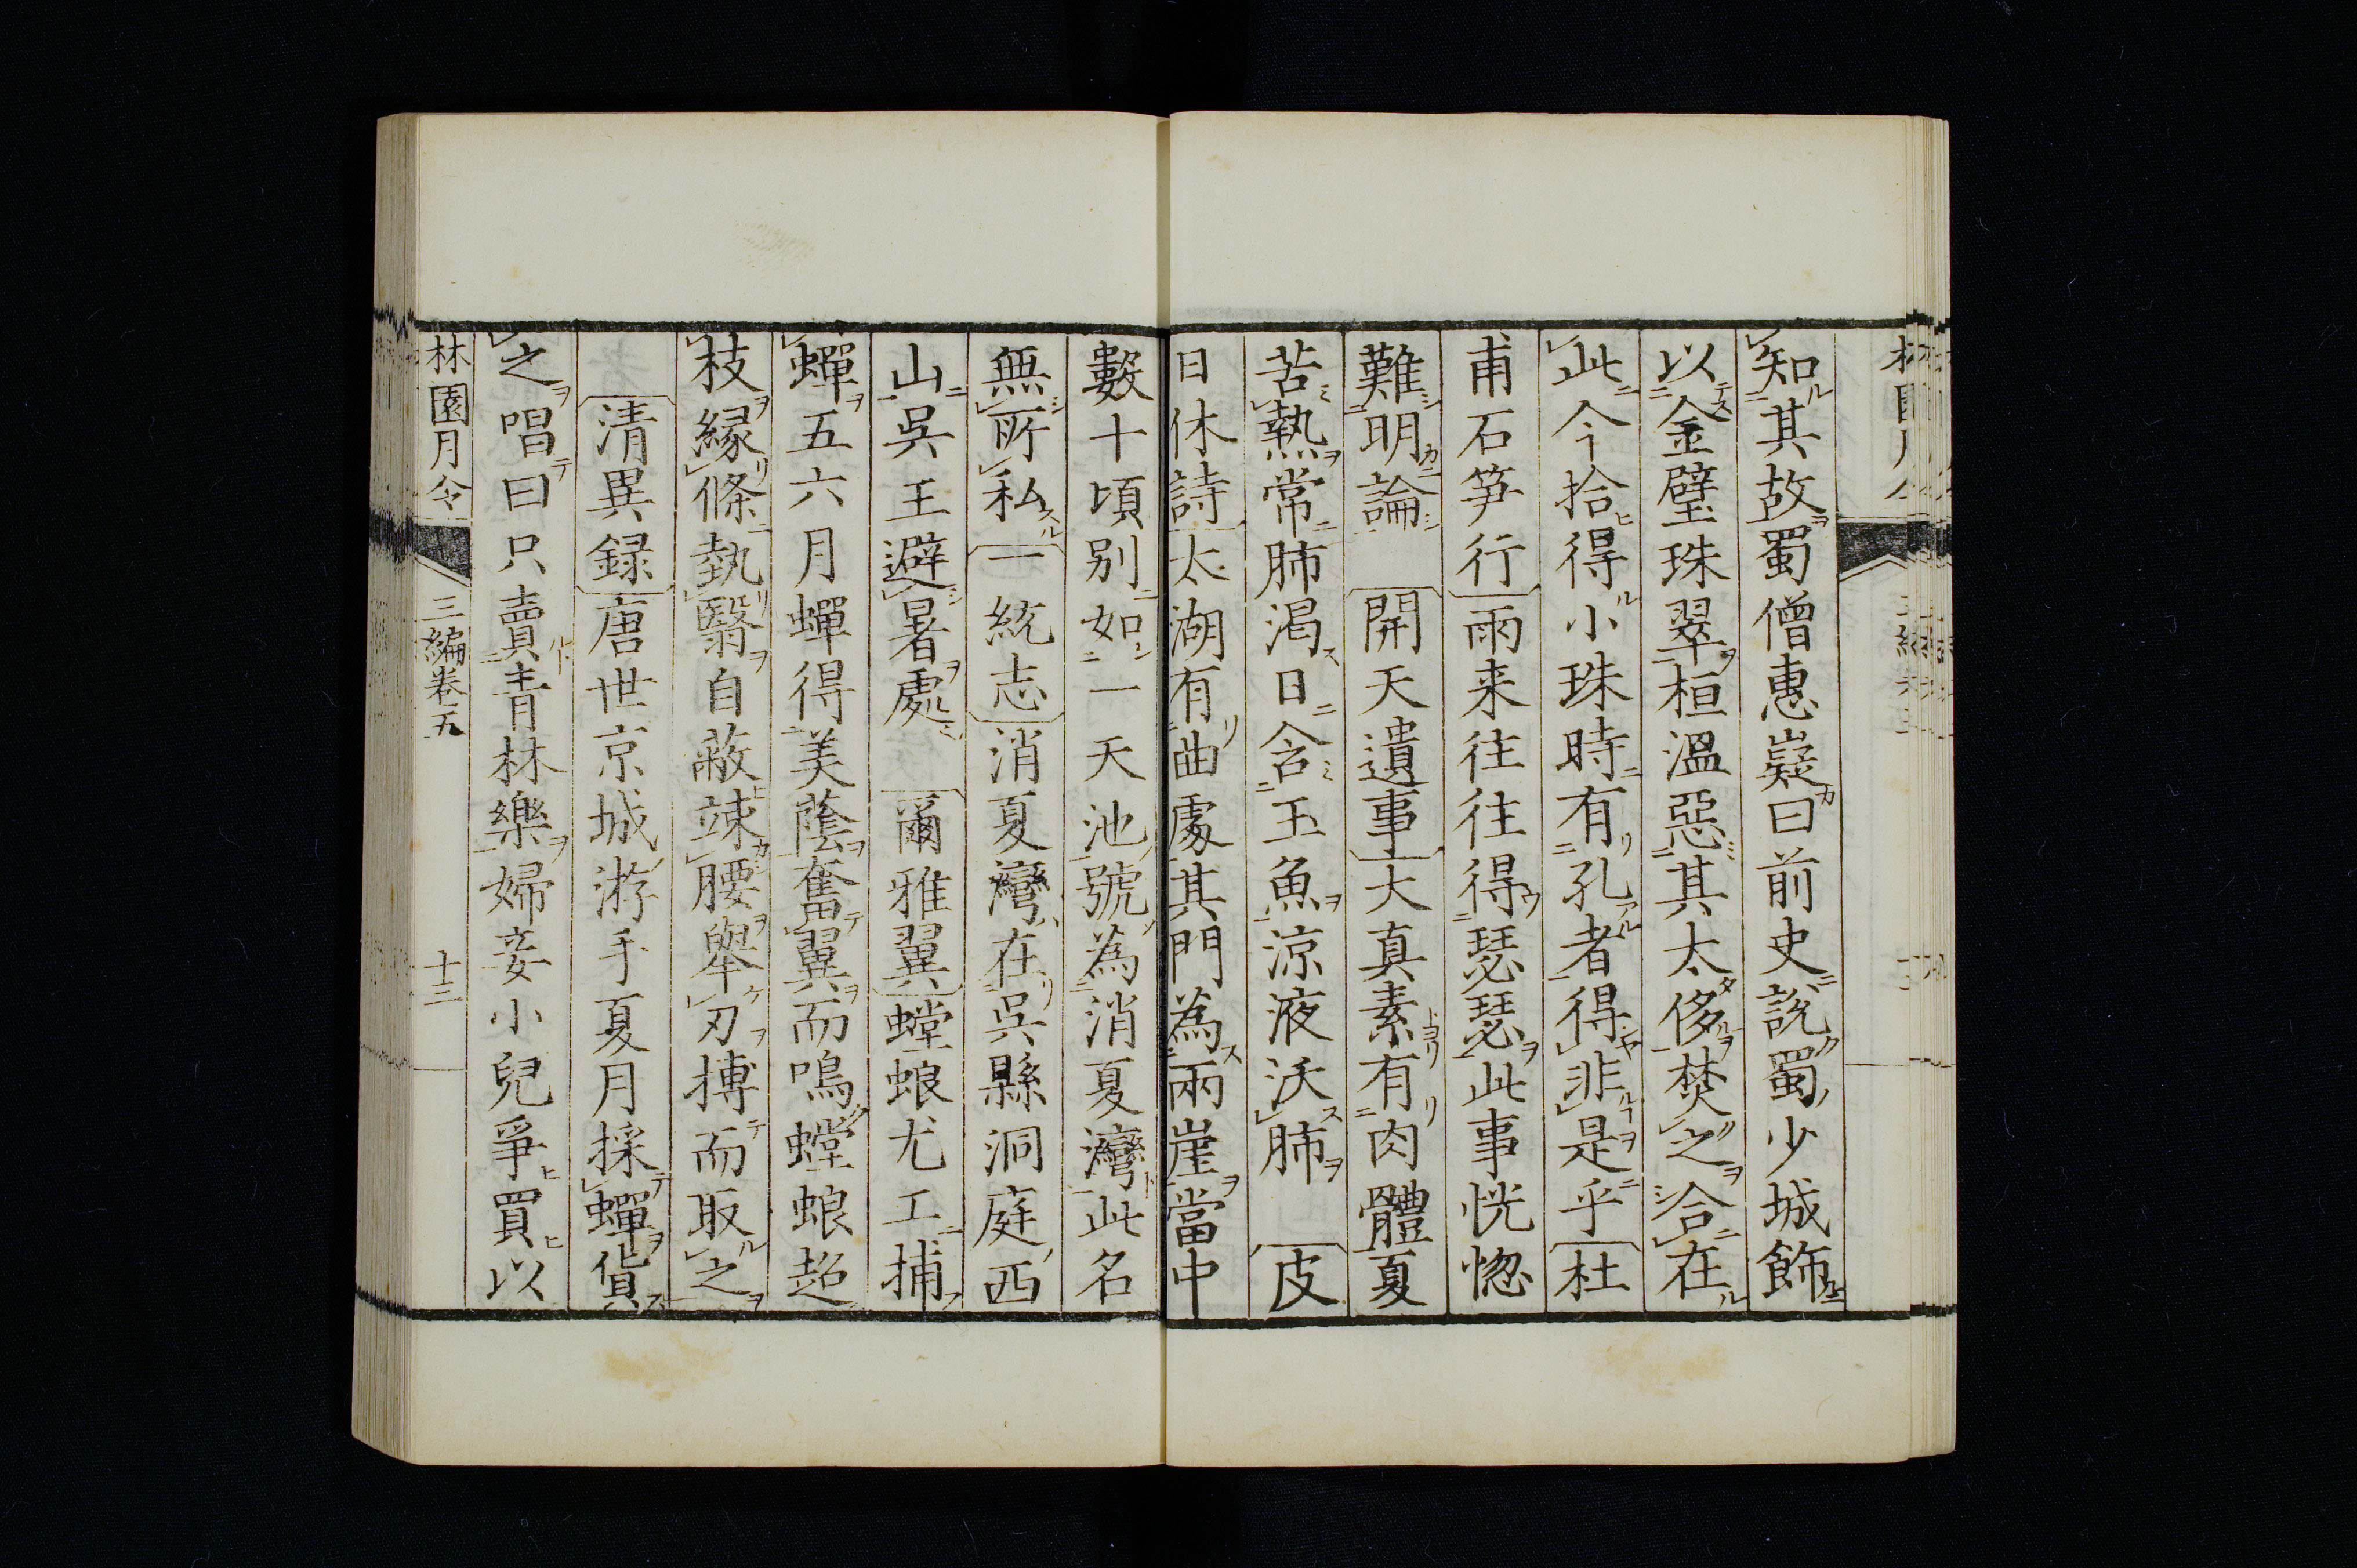 知其故蜀僧惠嶷曰前史說蜀少城飾
以金璧珠翠桓溫惡其太侈焚之合在
此今拾得小珠時有孔者得非是乎杜
甫石笋行雨来往往得瑟瑟此事恍惚
難明論 開天遺事大真素有肉體夏
苦熱常肺渴日含玉魚凉液沃肺 皮
日休詩太湖有曲處其門為兩崖當中
數十頃别如一天池號為消夏灣此名
無所私一統志消夏灣在吳縣洞庭西
山吳王避暑處 爾雅翼螳蜋尤工捕
蟬五六月蟬得美蔭奮翼而鳴螳蜋超
枝緣條執翳自蔽竦腰舉刃搏而取之
清異録唐世京城游手夏月採蟬貨
之唱曰只賣青林樂婦妾小兒爭買以
林園月令 三編卷五 十二